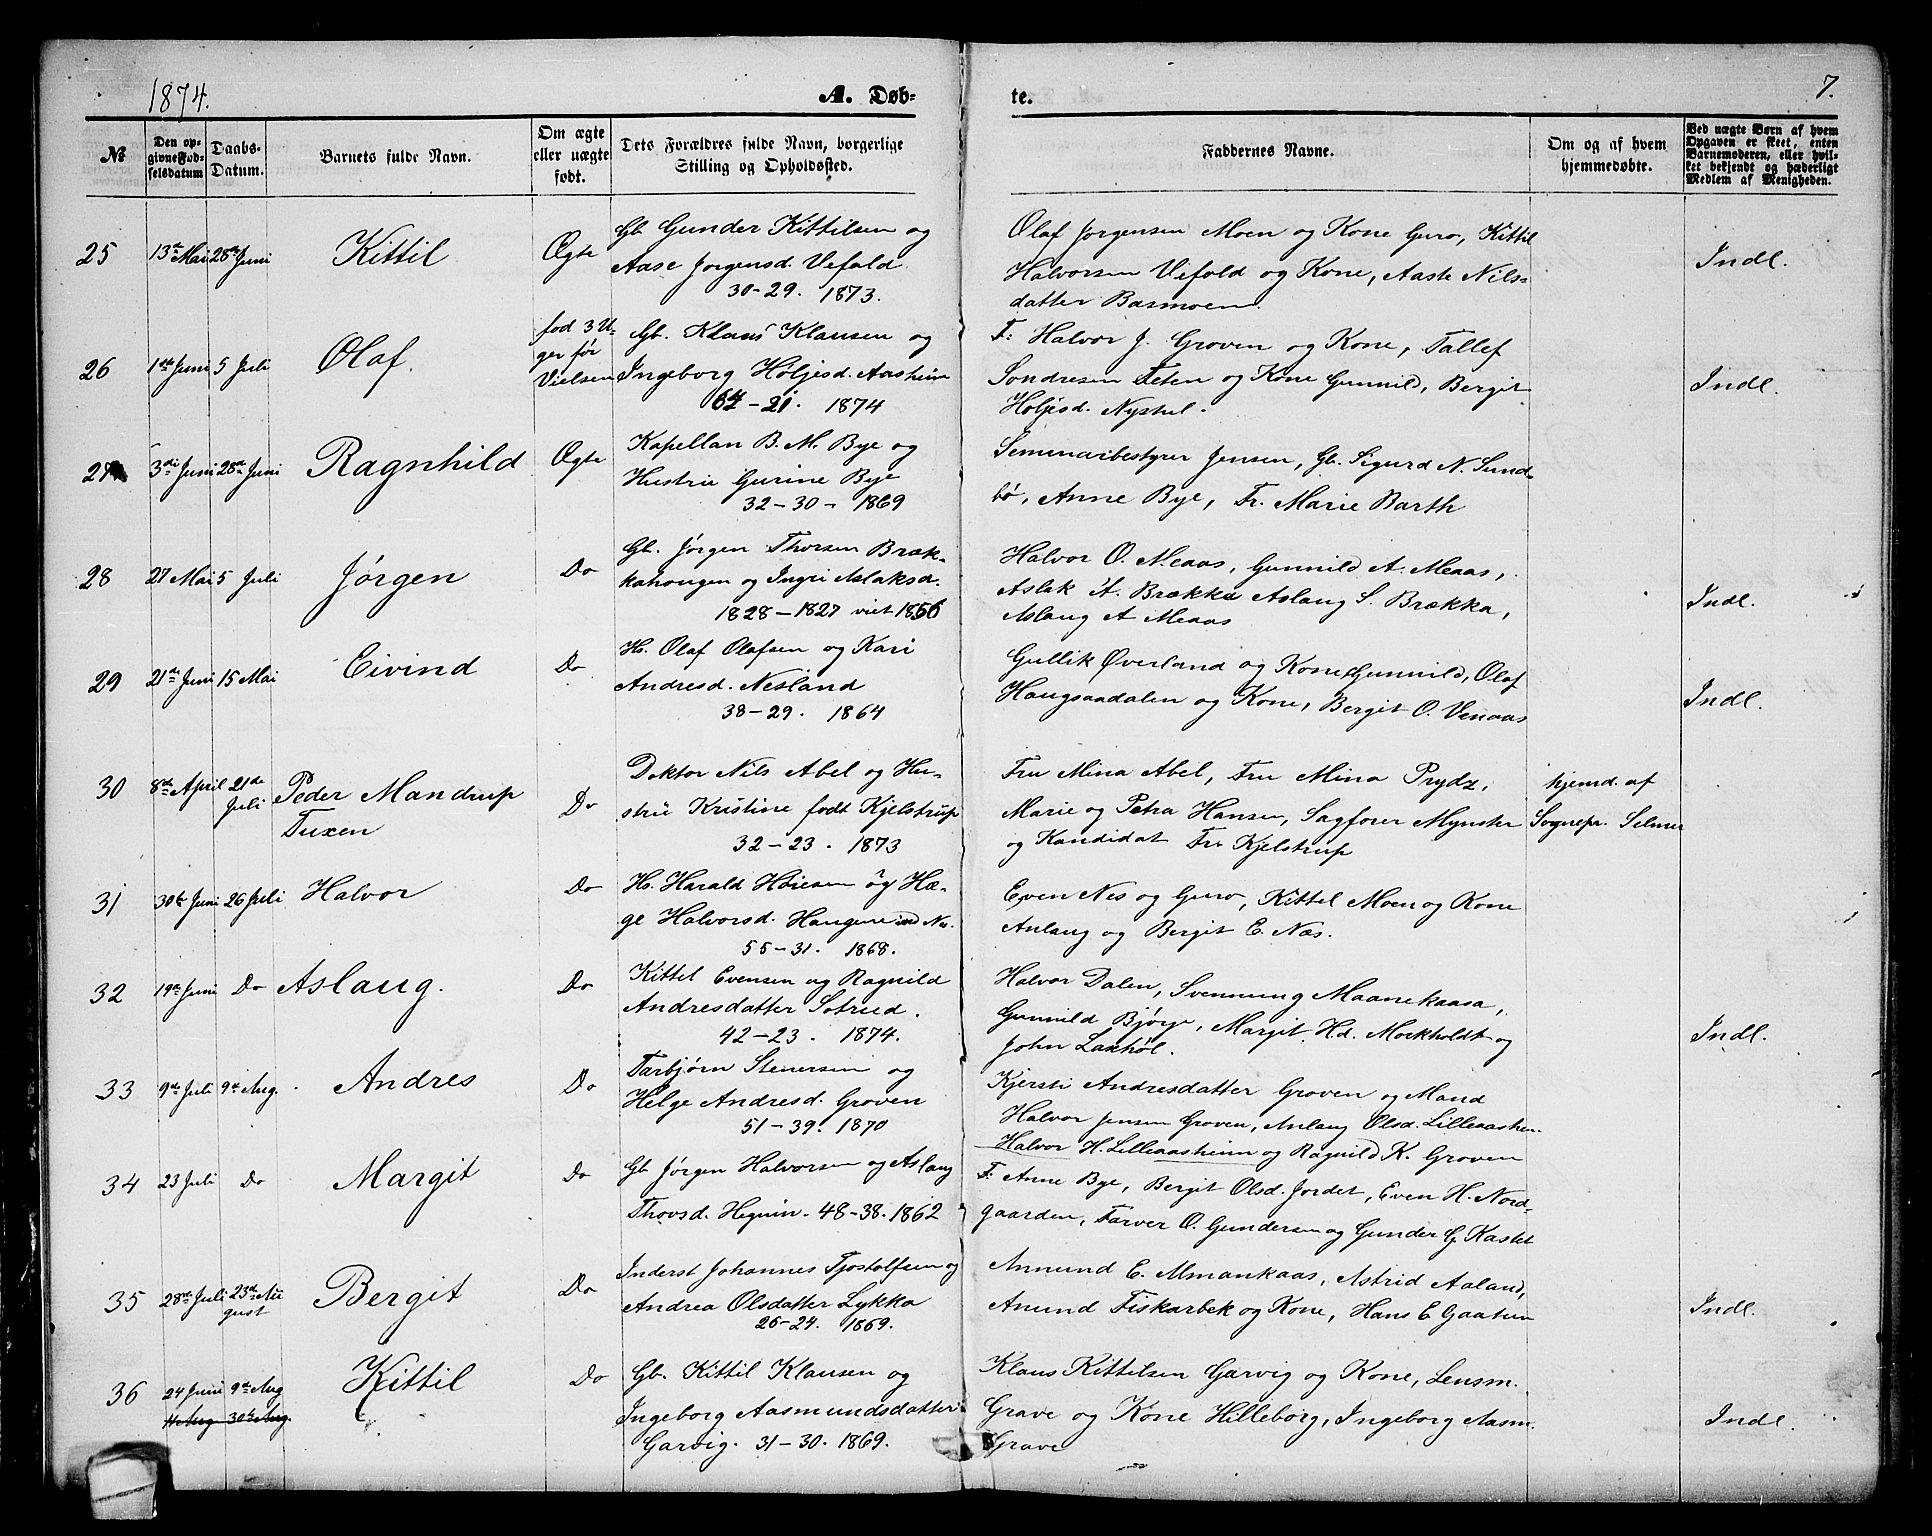 1874.
A. Døb-
te.
7.
№
Den op-
givne Fød-
selsdatum
Daabs-
Datum.
Barnets fulde Navn.
Om ægte
eller uægte
født.
Dets Forældres fulde Navn, borgerlige
Stilling og Opholdssted.
Faddernes Navne.
Om og af hvem
hjemmedøbte.
Ved uægte Børn af hvem
Opgaven er skeet, enten
Barnemoderen, eller hvil-
ket bekjendt og hæderligt
Medlem af Menigheden.
25
13de Mai
28de Juni
Kittil
Ægte
Gb. Gunder Kittilsen og
Aase Jorgensd. Vefald
30-29. 1873.
Olaf Jorgensen Moen og Kone Guro, Kittil
Halvorsen Vifold og Kone, Aaste Nils-
datter Basmoen
Indl.
26
1ste Juni
5 Juli
Olaf.
fod 3 U-
ger før
Vielsen
Gb. Klaus Klausen og
Ingeborg Holjesd. Aasheim
64-21. 1874
F: Halvor J. Groven og Kone, Tallef
Sondresen Teten og Kone Gunnild, Bergit
Holjesd. Nystul.
Indl.
27
3die Juni
28de Juni
Ragnhild
Ægte
Kapellan B. M. Bye og
Hustru Gurine Bye
32-30- 1869
Seminarbestyrer Jensen, Gb. Sigurd N. Sund-
bø, Anne Bye, Fr. Marie Barth
28
27 Mai
5 Juli
Jørgen
Do
Gb. Jørgen Thorsen Bræk-
kahougen og Ingri Aslaksd.
1828-1827 viet 1856
Halvor O. Meaas, Gunnild A. Meaas,
Aslak A. Brække Aslaug S. Brækka,
Aslaug A Meaas
Indl.
29
21de Juni
15 Mai
Eivind
Do
Hs. Olaf Olafsen og Kari
Andresd. Nesland
38-29. 1864
Gullik Øverland og Kone Gunnild, Olaf
Haugsaadalen og Kone, Bergit O. Venaas
Indl.
30
8de April
21de
Juli
Peder Mandrup
Tuxen
Do
Doktor Nils Abel og Hu-
stru Kristine født Kjelstrup
32-23. 1873
Fru Mina Abel, Fru Mina Prydz,
Marie og Petra Hansen, Sagfører Mynster
og Kandidat Fr. Kjelstrup
hjemd. af
Sognepr. Selmer
31
30te Juni
26 Juli
Halvor
Do
Hs. Harald Høiesen og Hæ-
ge Halvorsd. Haugene ind Nes.
55-31. 1868.
Even Nes og Guro, Kittel Moen og Kone
Anlaug og Bergit E. Næs.
32
19de Juni
Do
Aslaug.
Do
Kittel Evensen og Ragnild
Andresdatter Sotrud.
42-23. 1874.
Halvor Dalen, Svennung Maanekaasa,
Gunnild Bjørge, Margit Hd. Mockholdt og
John Laxhøl.
Indl.
33
9de Juli
9de Aug.
Andres
Do
Tarbjørn Stenersen og
Helge Andresd. Groven
51-39. 1870
Kjersti Andresdatter Groven og Mand
Halvor Jensen Groven, Anlaug Olsd. Lilleaashei-
Halvor H. Lilleaasheim og Ragnild K. Groven
34
23 Juli
Do
Margit
Do
Gb Jørgen Halvorsen og Aslaug
Thovsd. Heguin. 48-38. 1862
F. Anne Bye, Bergit Olsd. Jordet, Even H. Nord-
gaarden, Tarver O. Gundersen og Gunder G. Kastet
35
28de Juli
23de Au
gust
Bergit
Do
Inderst Johannes Tjostolfsen og
Andrea Olsdatter Lykka
26-24. 1869.
Annund E. Mmankaas, Astrid Aaland,
Anund Fiskarbek og Kone, Hans E Gaatun
Indl.
36
24 Juni
9de Aug
30te Aug.
Kittil
Do
Gb. Kittil Klausen og
Ingeborg Aasmundsdatter
Garvig. 31-30. 1869.
Klaus Kittilsen Garvig og Kone, Lensm.
Grave og Kone Hilleborg, Ingeborg Aasm.
Grave
Indl.